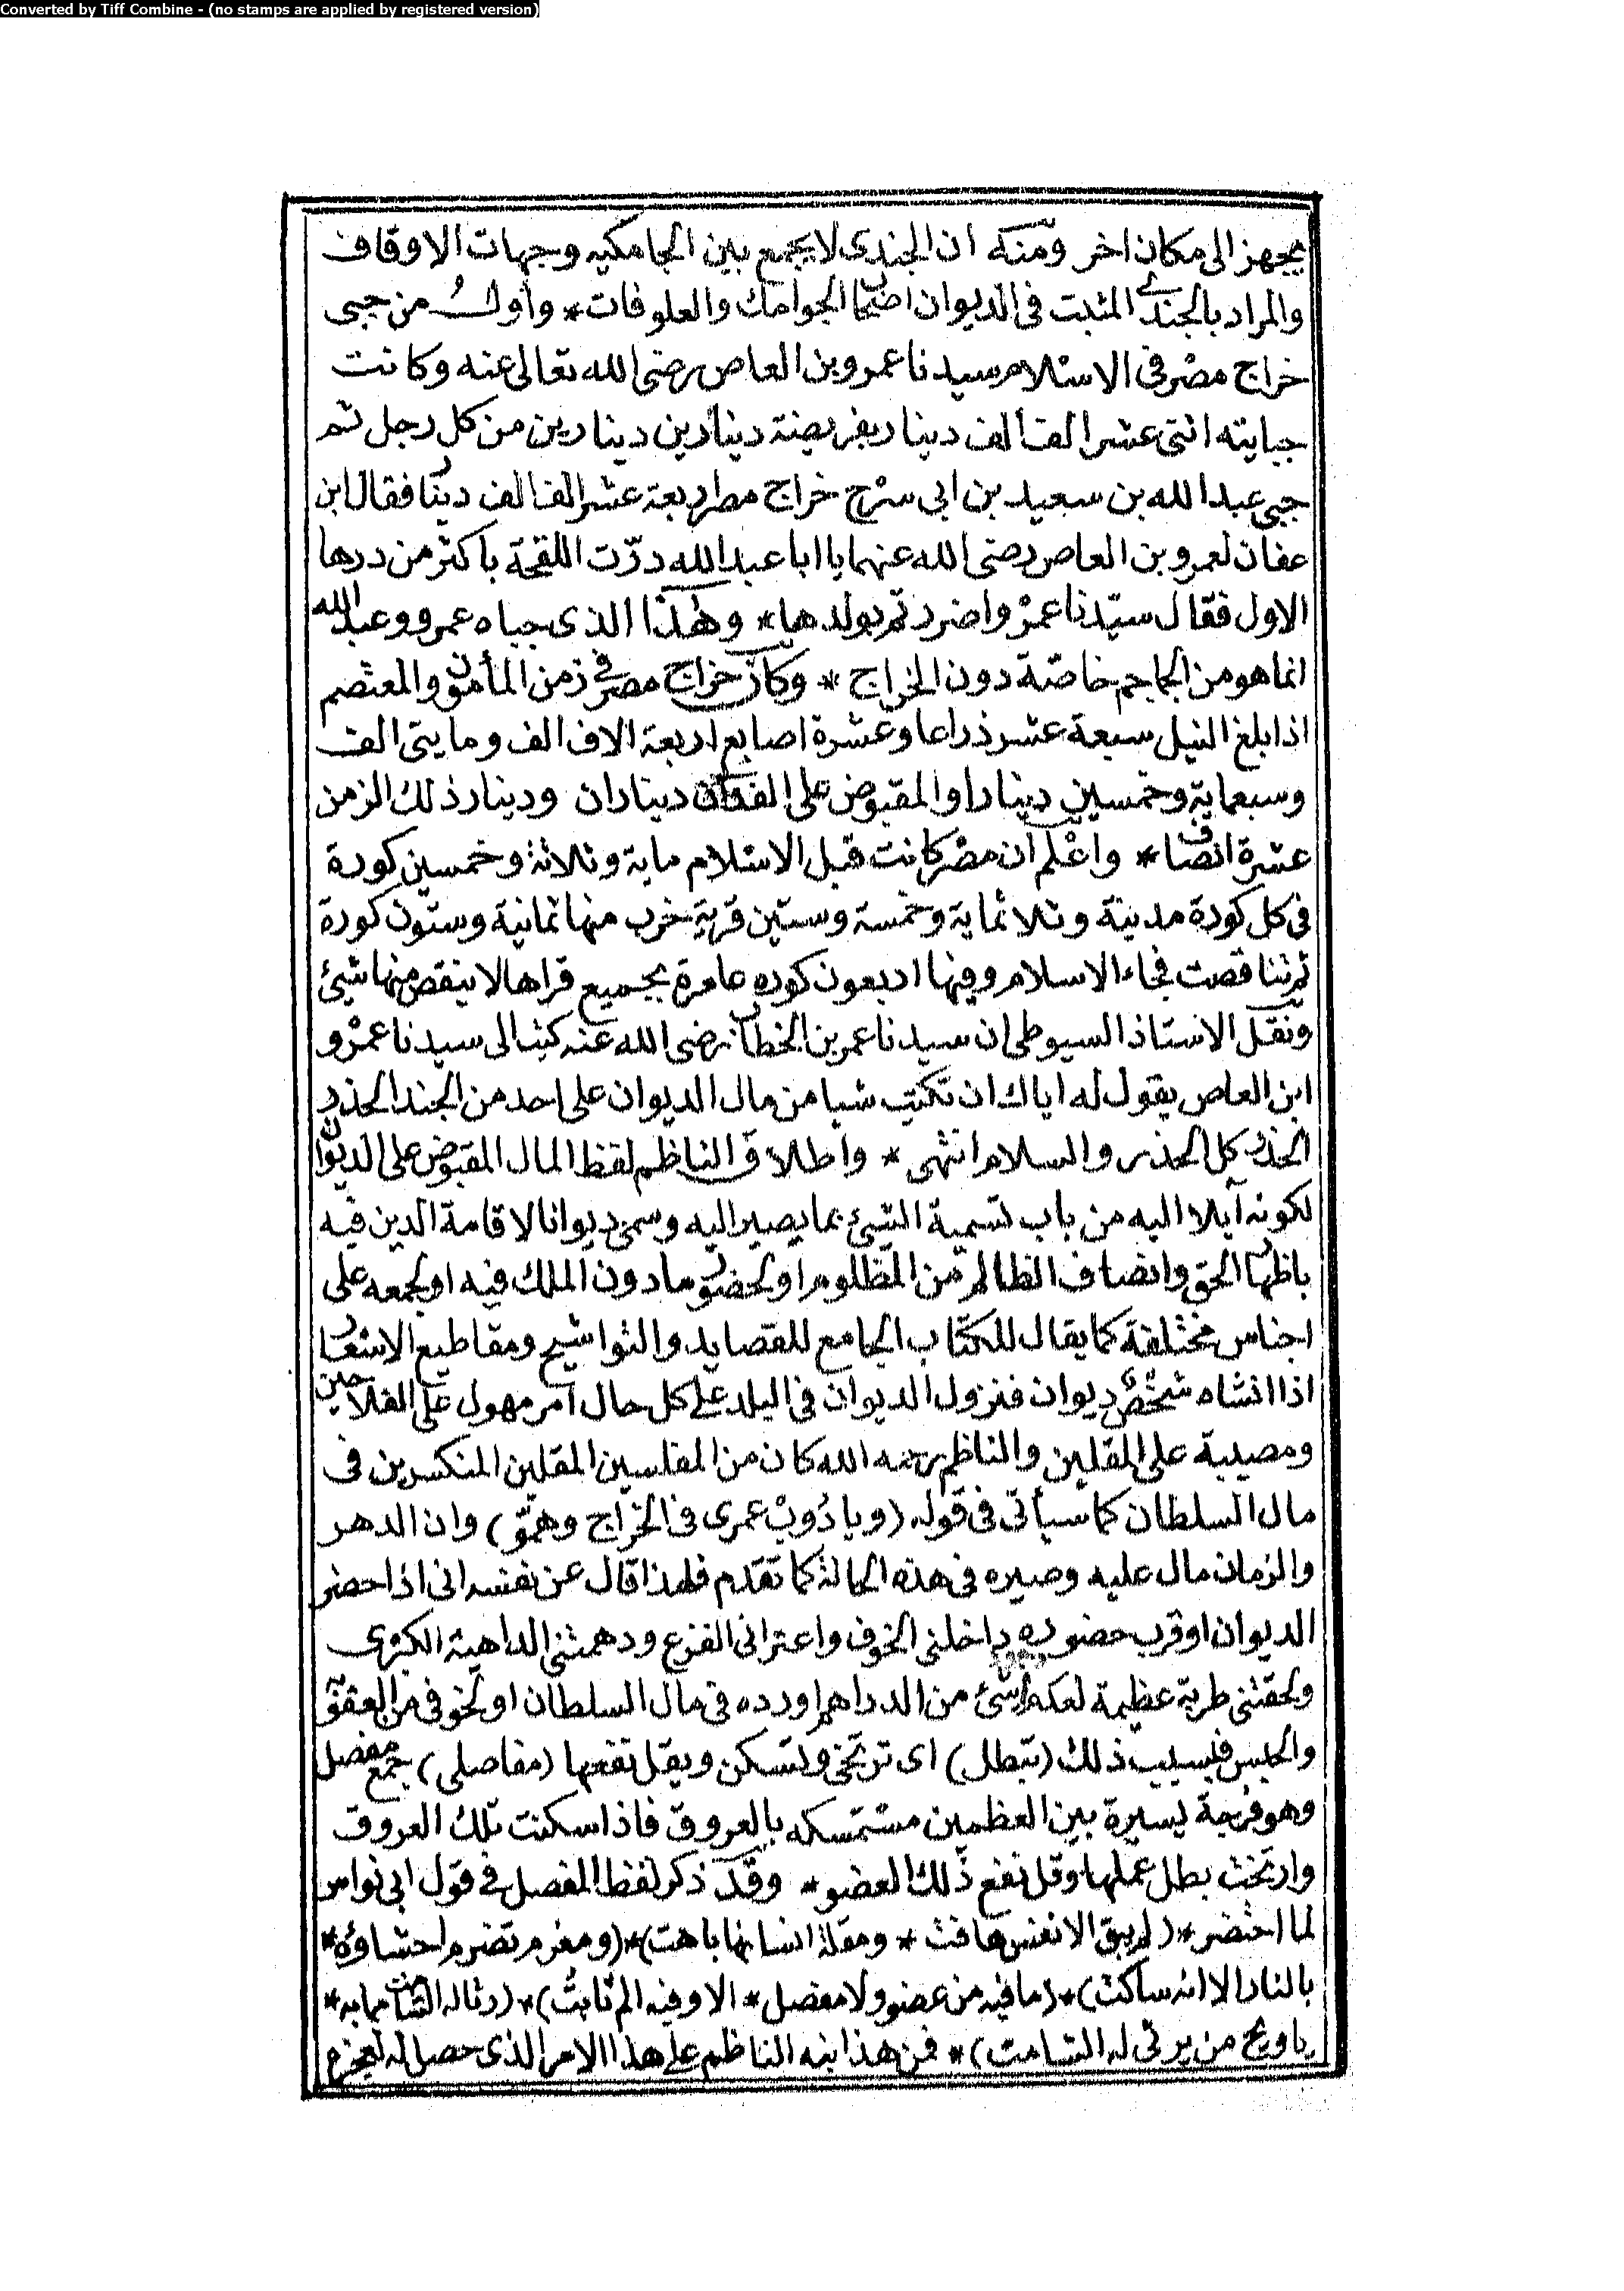 Converted by Tiff Combine - (no stamps are applied by registered version)
يجهز الى مكان اخر ومنه ان الجندى لا يجمع بين الجامكيه وجهات الاوقاف
والمراد بالجندى المثبت فى الديوان اصحاب الجوامك والعلوفات * واول من جبى
خراج مصر فى الاسلام سيدنا عمرو بن العاص رضى الله تعالى عنه وكانت
جبايته اثنى عشر الف الف دينار بفريضة دينارين دينارين من كل رجل ثم
جبى عبد الله بن سعيد بن ابى سرح خراج مصر اربعة عشر الف الف دينار فقال ابن
عفان لعمرو بن العاص رضى الله عنهما يا ابا عبد الله درّت اللقحة باكثر من درها
الاول فقال سيّدنا عمرو اضررتم بولدها * وهذا الذى جباه عمرو وعبد الله
انما هو من الجماجم خاصّة دون الخراج * وكان خراج مصر فى زمن المأمون والمعتصم
اذا بلغ النيل سبعة عشر ذراعا وعشرة اصابع اربعة الاف الف ومايتى الف
وسبعماية وخمسين دينارا والمقبوض على الفدان ديناران ودينار ذلك الزمن
عشرة انصاف * واعلم ان مصر كانت قبل الاسلام ماية وثلاثة وخمسين كورة
فى كل كورة مدينة وثلاثماية وخمسة وستين قرية خرب منها ثمانية وستون كورة
ثم تناقصت فجاء الاسلام وفيها اربعون كوره عامرة بجميع قراها لا ينقص منها شيئ
ونقل الاستاذ السيوطى ان سيدنا عمر بن الخطاب رضى الله عنه كتب الى سيدنا عمرو
ابن العاص يقول له اياك ان تكتب شيا من مال الديوان على احد من الجند الحذر
الحذر كل الحذر والسلام انتهى * واطلاق الناظم لفظ المال المقبوض على الديوان
لكونه آيلا اليه من باب تسمية الشيئ بما يصير اليه وسمى ديوانا لاقامة الدين فيه
باظهار الحق وانصاف الظالم من المظلوم او لحضور مادون الملك فيه او لجمعه على
اجناس مختلفة كما يقال للكتاب الجامع للقصايد والتواشيح ومقاطيع الاشعار
اذا انشاه شخص ديوان فنزول الديوان فى البلد على كل حال امر مهول على الفلاحين
ومصيبة على المقلين والناظم رحمه الله كان من المفلسين المقلين المنكسرين فى
مال السلطان كما سيأتى فى قوله (ويا دُوبْ عمرى فى الخراج وهمّو) وان الدهر
والزمان مال عليه وصيره فى هذه الحالة كما تقدم فلهذا قال عن نفسه انى اذا حضر
الديوان او قرب حضوره داخلنى الخوف واعترانى الفزع ودهمتنى الداهية الكبرى
ولحقتنى طربة عظيمة لعدم شئ من الدراهم اورده فى مال السلطان او لخوفى من العقوبة
والحبس فبسبب ذلك (تبطل) اى ترتخى وتسكن ويقل نفعها (مفاصلى) جمع مفصل
وهو فرجة يسيرة بين العظمين مستمسكه بالعروق فاذا سكنت تلك العروق
وارتخت بطل عملها وقل نفع ذلك العضو * وقد ذكر لفظ المفصل فى قول ابى نواس
لما احتضر * (لم يبق الا نفس هافت * ومقلة انسانها باهت) * (ومغرم تضرم احشاؤه *
بالنار الا انه ساكت) * (ما فيه من عضو ولا مفصل * الا وفيه الم ثابت) * (رثى له الشامت مما به *
يا ويح من يرثى له الشامت) * فمن هذا نبه الناظم على هذا الامر الذى حصل له ليخرج